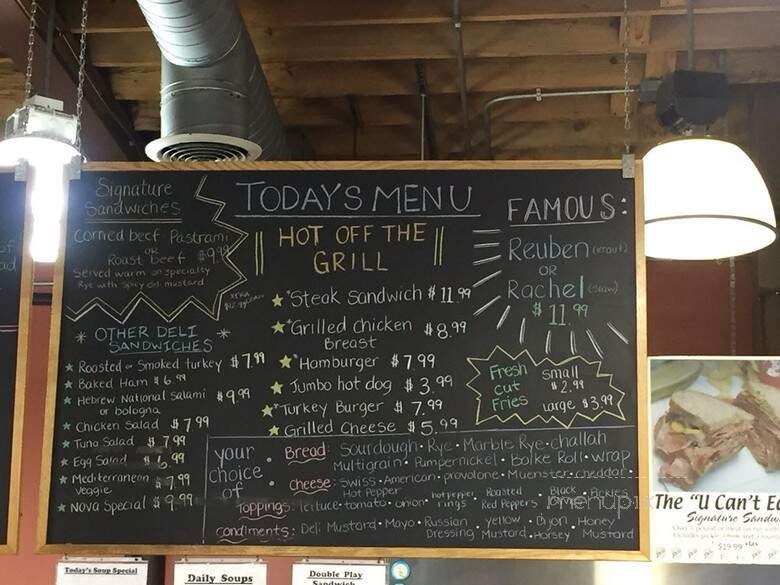 Signature
Sandwiches
Corned beef Pastrami
OR
Roast beef $9.99
Served warm on specialty
Rye with spicy deli mustard
TODAY'S MENU
HOT OFF THE
GRILL
* Steak Sandwich $11.99
* Grilled chicken $8.99
Breast
* Homburger $7.99
* Jumbo hot dog $3.99
* Turkey Burger $7.99
* Grilled Cheese $5.99
FAMOUS:
Reuben (kraut)
OR
Rachel (slaw)
$11.99
Fresh
cut
Fries
small
$2.99
Large $3.99
* OTHER DELI *
SANDWICHES
* Roasted or Smoked turkey $7.99
* Baked Ham $6.99
* Hebrew National Salami $9.99
or bologna
* Chicken Salad $7.99
* Tuna Salad $7.99
* Egg Salad $6.99
* Mediterranean $7.99
veggie
* NOVA Special $9.99
your
choice
of
Bread: Sourdough · Rye · Marble Rye · challah
Multigrain · Pumpernickel · Bolke Roll · wrap
cheese: Swiss · American · provolone · Muenster · cheddar ·
Hot Pepper
Toppings: lettuce · tomato · onion · hot pepper rings · Roasted Red Peppers · Black · Pickles
condiments: Deli Mustard · Mayo · Russian Dressing · yellow Mustard · Dijon · Horsey · Honey Mustard
menupix
The "U Can't Ea
Signature Sandw
$19.99
Today's Soup Special
Daily Soups
Double Play
Sandwich